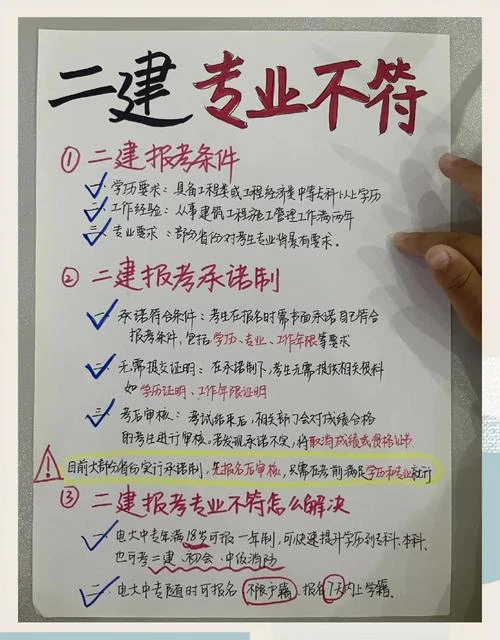 二建 专业不符
① 二建报考条件
一. 学历要求：具备工程类或工程经济类中等专科以上学历
二. 工作经验：从事建筑工程施工管理工作满两年
三. 专业要求：部分省份对考生专业背景有要求。
② 二建报考承诺制
一. 承诺符合条件：考生在报名时需书面承诺自己符合
报考条件，包括学历、专业、工作年限等要求
二. 无需提交证明：在承诺制下，考生无需提供相关资料
如 学历证明、工作年限证明
三. 考后审核：考试结束后，相关部门会对成绩合格
的考生进行审核，若发现承诺不实，将取消成绩或资格证书
目前大部分省份实行承诺制，先报名后审核，只需在考前满足学历和专业就行
③ 二建报考专业不符怎么解决
一. 电大中专年满18岁可报一年制，可快速提升学历到专科、本科，
也可考二建、初会、中级消防
二. 电大中专随时可报名 不限户籍，报名7天内上学籍.